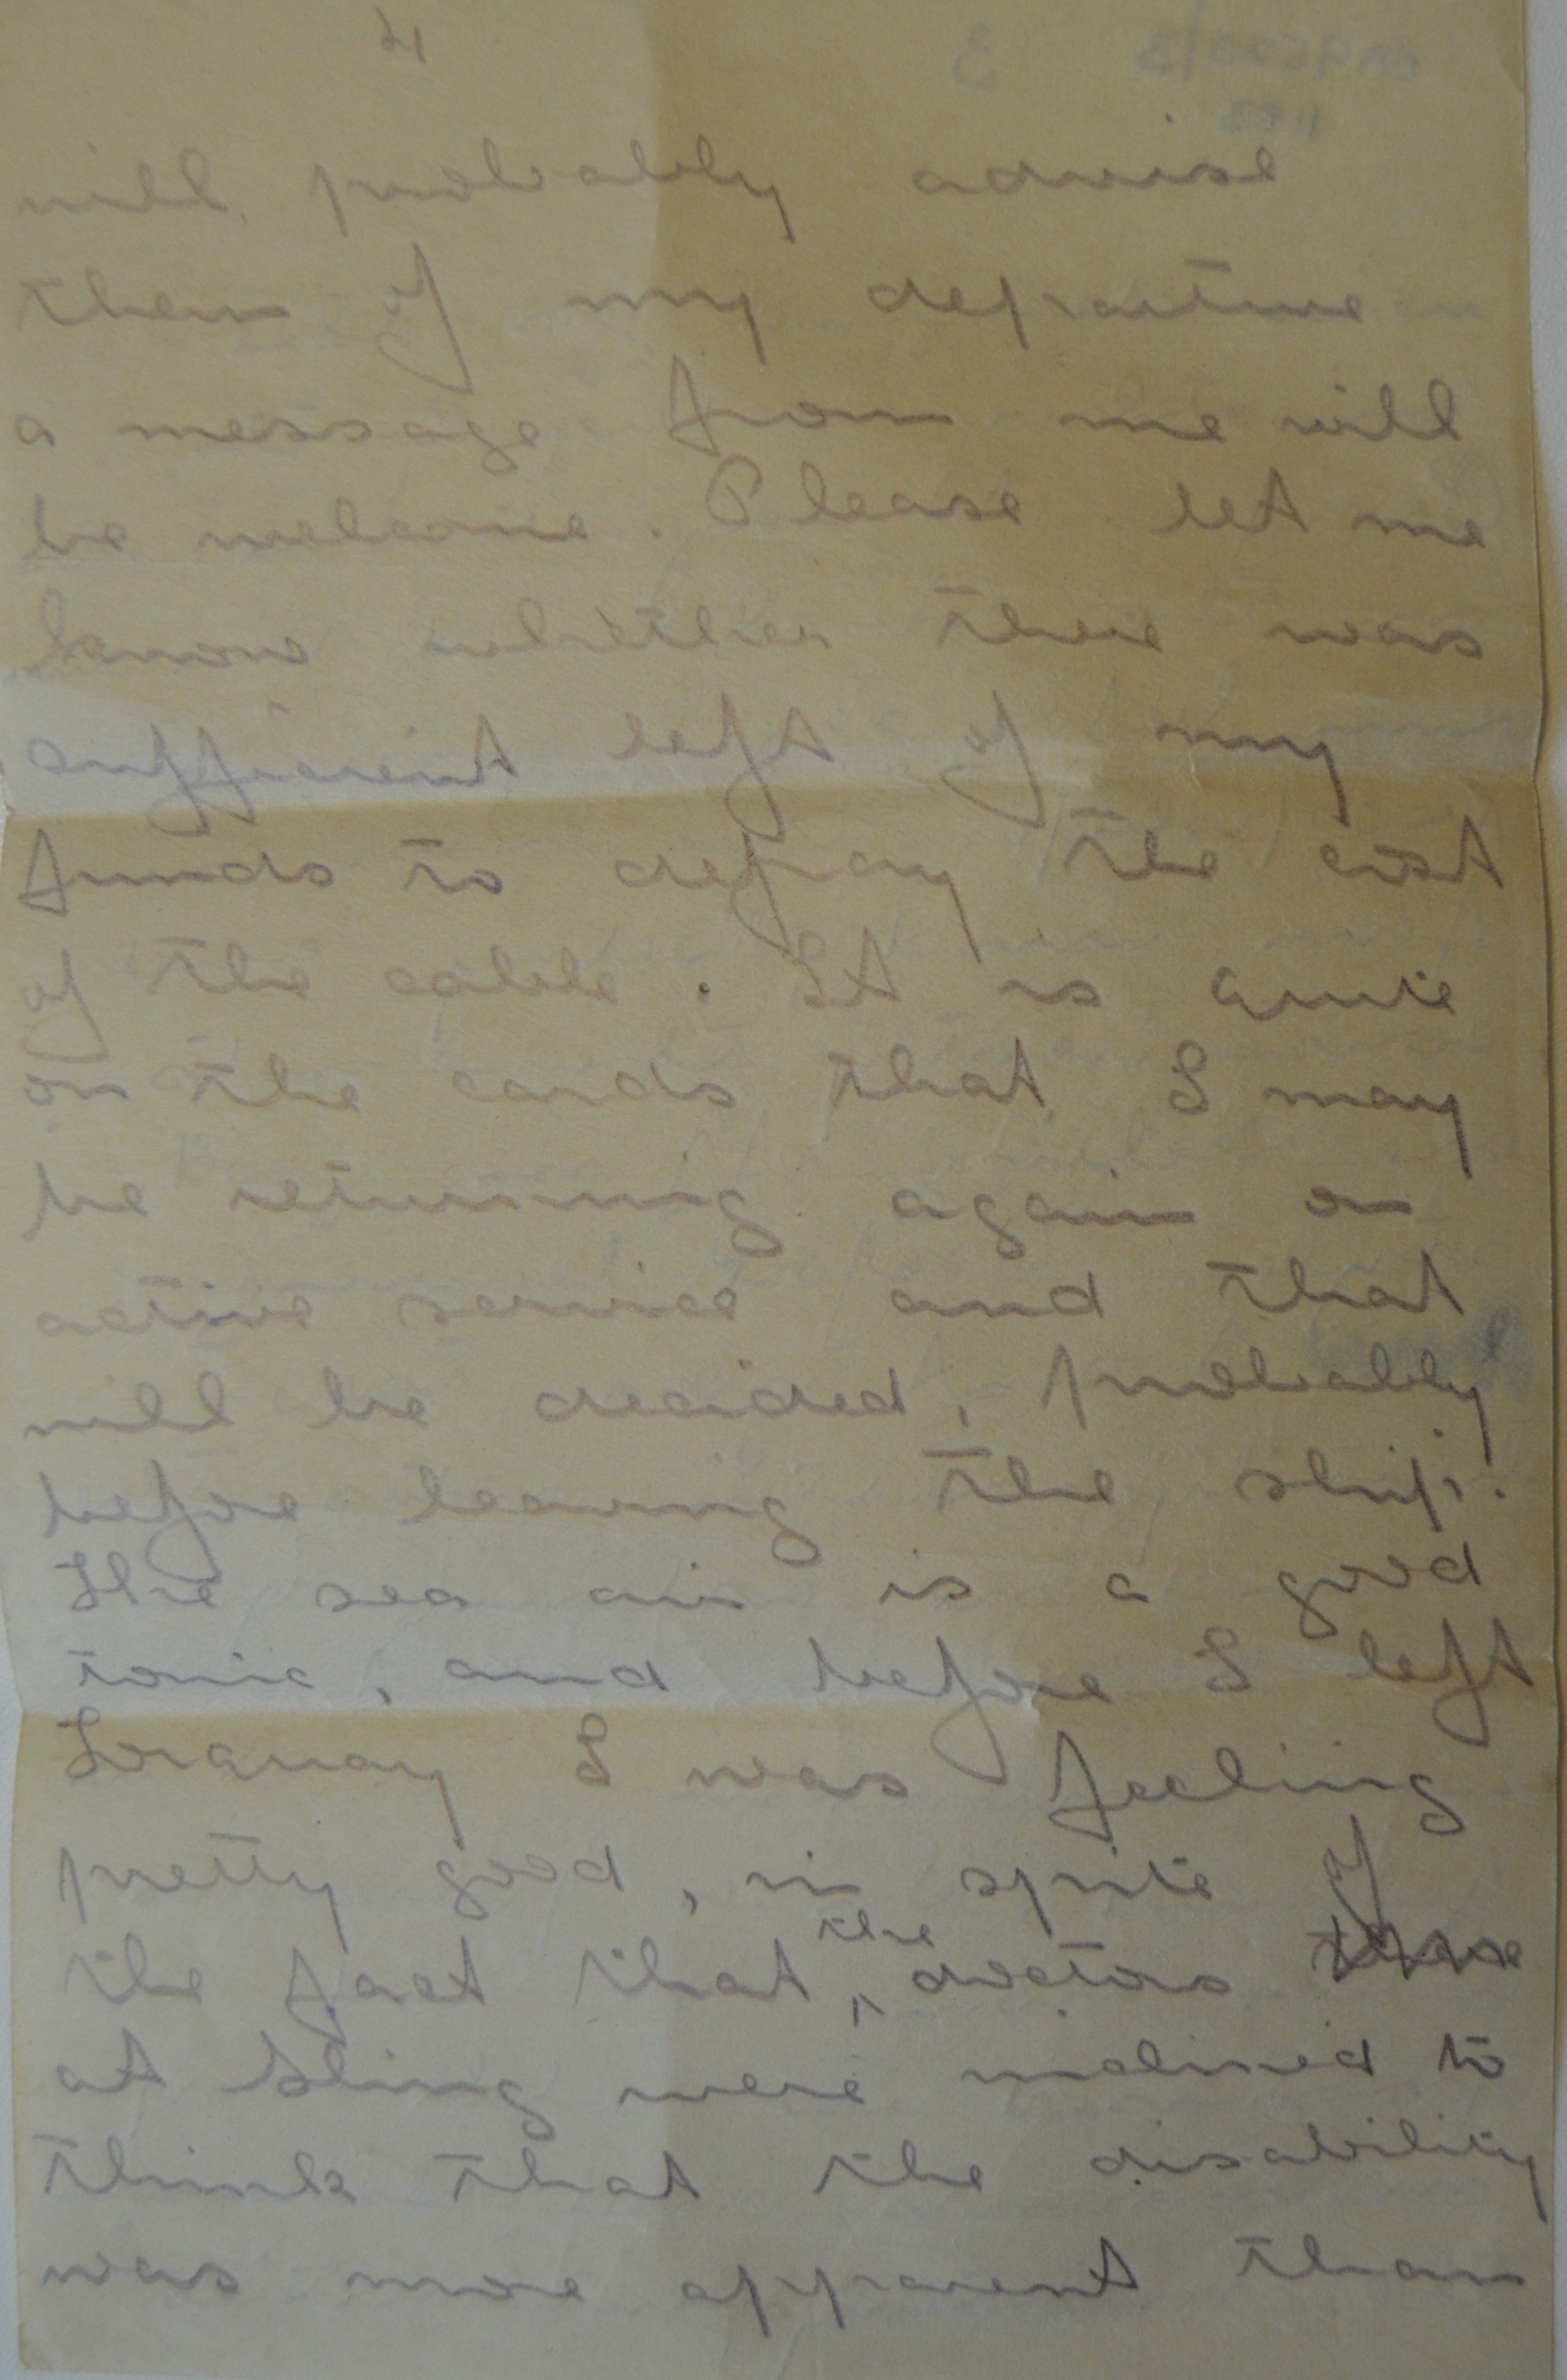 4
will probably advise
them of my departure
a message from me will
be welcome. Please let me
know whether there was
sufficient left of my
funds to defray the cost
of the cable. It is quite
on the cards that I may
be returning again on
active service and that
will be decided, probably
before leaving the ship.
The sea air is a good
tonic, and before I left
Torquay I was feeling
pretty good, in spite of
the fact that the doctors
at Sling were inclined to
think that the disability
was more apparent than